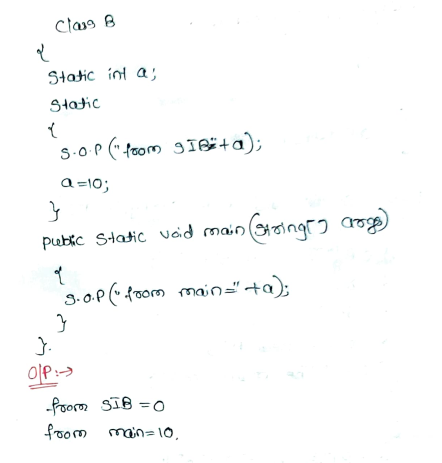 Class B
{
Static int a;
Static
{
S.O.P ("from SIB="+a);
a=10;
}
public static void main(String[] args)
{
S.O.P ("from main="+a);
}
}.
O/P:→
from SIB =0
from main=10.